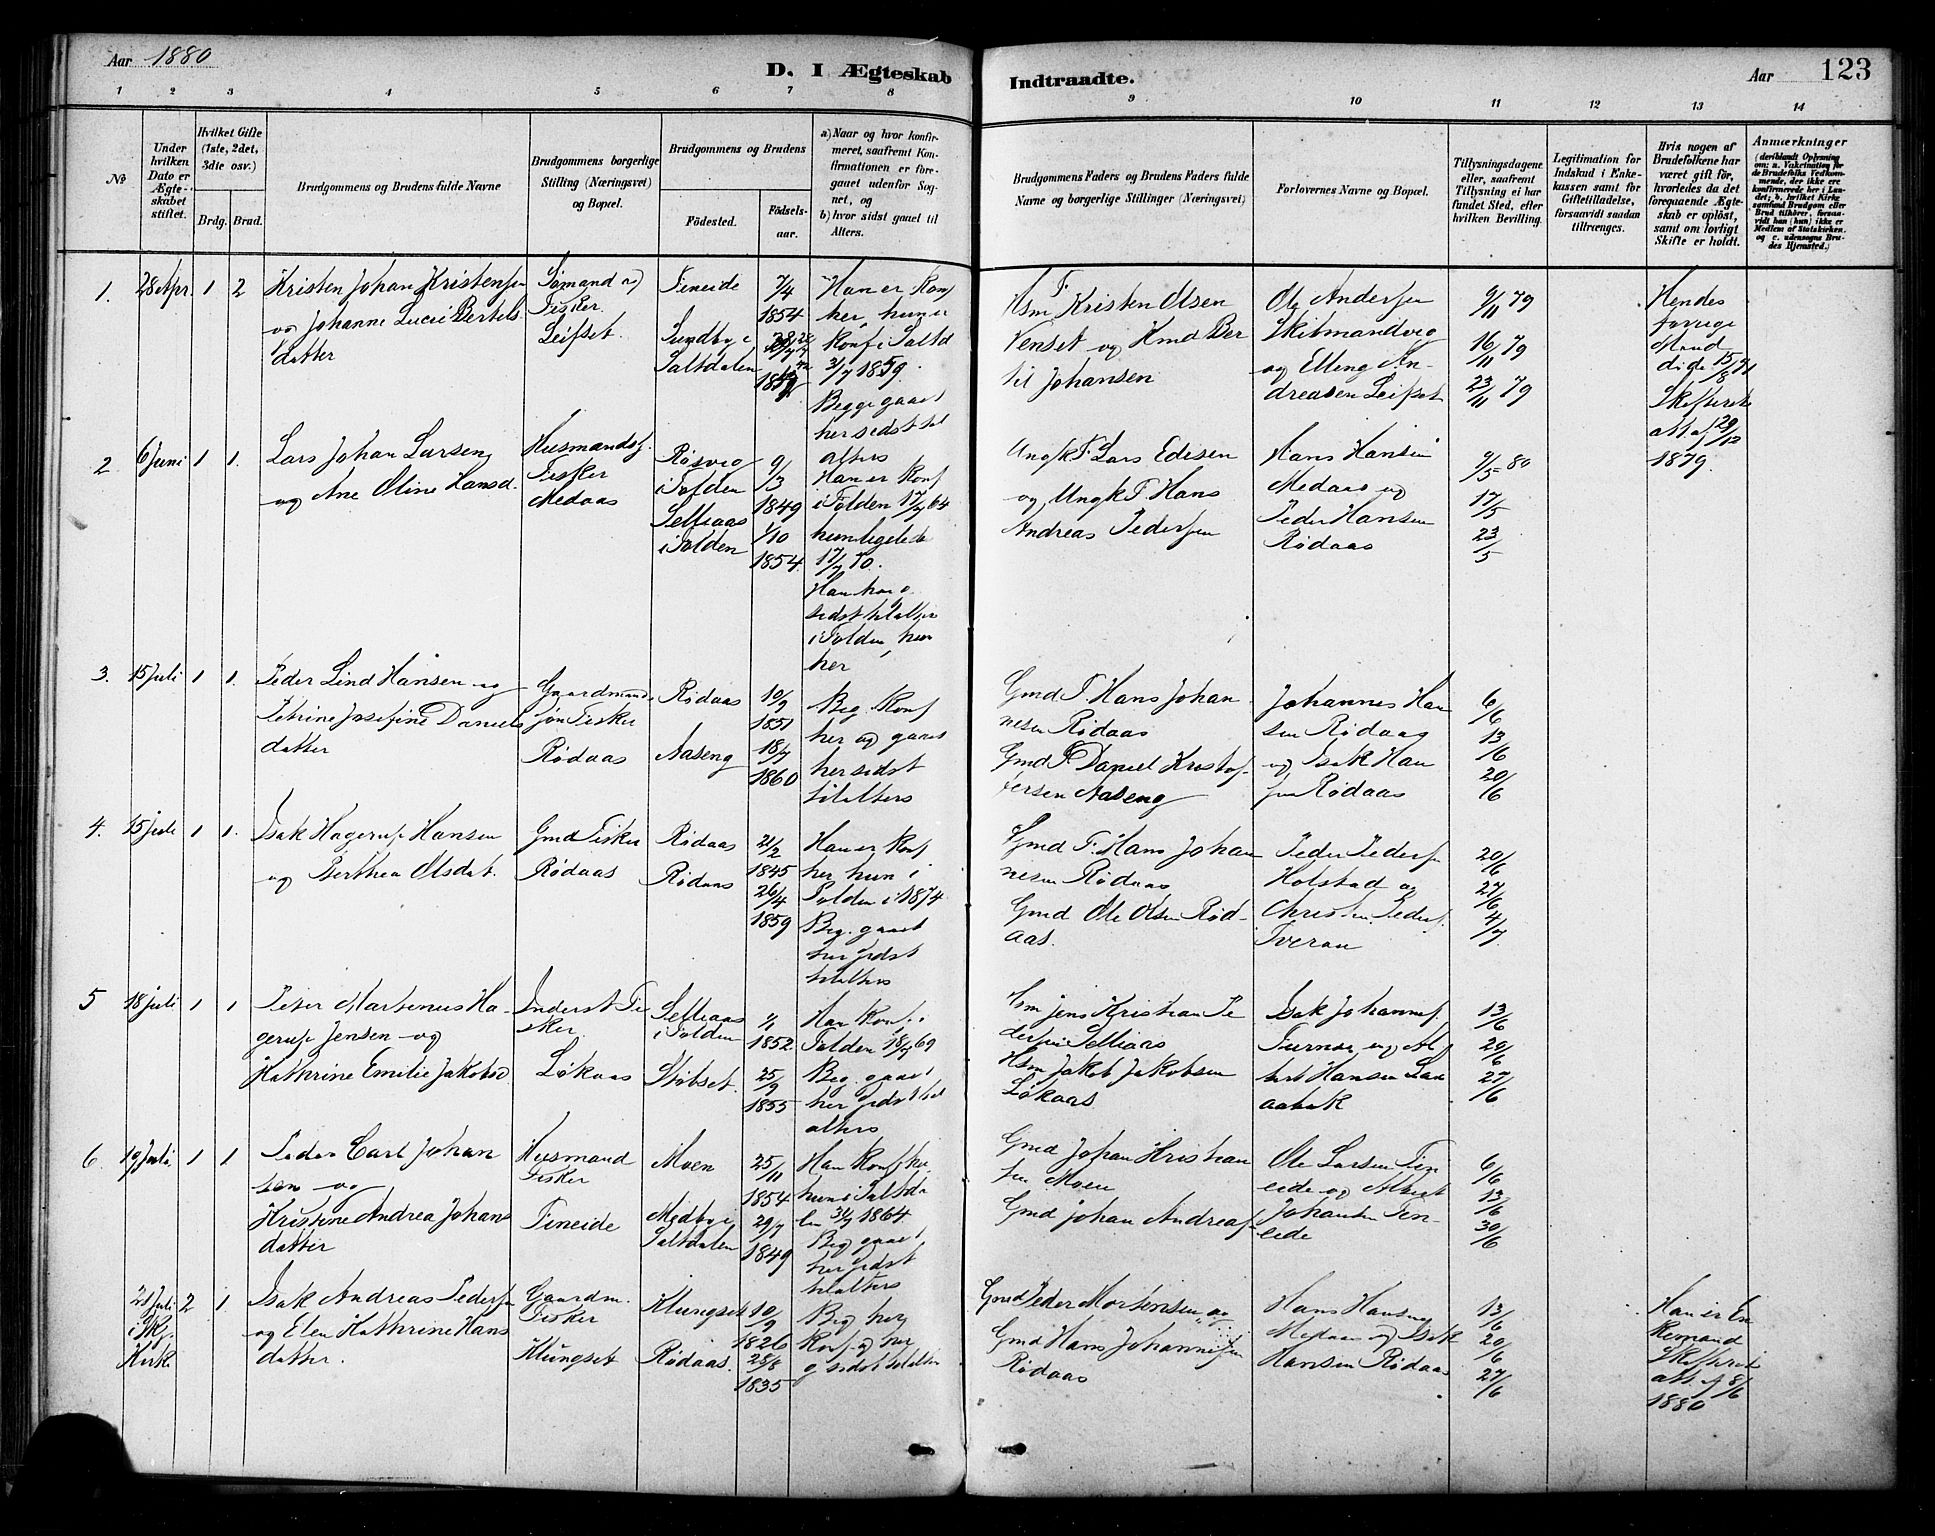 Aar 1880
D. I Ægteskab
Indtraadte.
Aar
123
1 2 3 4 5 6 7 8 9 10 11 12 13 14
No
Under
hvilken
Dato er
Ægte-
skabet
stiftet.
Hvilket Gifte
(1ste, 2det,
3die osv.)
Brdg. Brud.
Brudgommens og Brudens fulde Navne
Brudgommens borgerlige
Stilling (Næringsvei)
og Bopæl.
Brudgommens og Brudens
Födested.
Födsels-
aar.
a) Naar og hvor konfir-
meret, saafremt Kon-
firmationen er fore-
gaaet udenfor Sog-
net, og
b) hvor sidst gaaet til
Alters.
Brudgommens Faders og Brudens Faders fulde
Navne og borgerlige Stillinger (Næringsvei)
Forlovernes Navne og Bopæl.
Tillysningsdagene
eller, saafremt
Tillysning ei har
fundet Sted, efter
hvilken Bevilling.
Legitimation for
Indskud i Enke-
kassen samt for
Giftetilladelse,
forsaavidt saadan
tiltrænges.
Hvis nogen af
Brudefolkene har
været gift för,
hvorledes da det
foregaaende Ægte-
skab er oplöst,
samt om lovligt
Skifte er holdt.
Anmærkninger
(deriblandt Oplysning
om: a. Vakcination for
de Brudefolks Vedkom-
mende, der ikke ere
konfirmerede her i Lan-
det; b. hvilket Kirke-
samfund Brudgom eller
Brud tilhörer, forsaa-
vidt han (hun) ikke er
Medlem af Statskirken,
og c. udensogns Bru-
des Hjemsted.)
1. 28 Apr. 1 2
Kristen Johan Kristensen
og Johanne Lucie Bertels
datter
Sömand og
Fisker
Leifset.
Fineide
Sundby i
Saltdalen
7/4
1854
Han er Konf
her, hun er
Konf i Saltd
3/7 1859.
Begge gaaet
her sidst til
alters
Hsm F. Kristen Olsen
Venset og Hmd Ber
til Johansen
Ole Andersen
Skitmandvig
og Elling An-
dreasen Leifset
9/11 79
16/11 79
23/11 79
Hendes
forrige
Mand
döde 15/8 71
Skifteret
att af 29/12
1879.
2 6 Juni 1 1.
Lars Johan Larsen
og Ane Oline Hansd.
Husmandsf.
Fisker
Medaas
Røsvig
i Folden
Selliaas
i Folden
9/3
1849
1/10
1854.
Han er Konf
i Folden 17/7 64
hun ligeleds
17/7 70.
Han har g
sidst til alters
i Folden, hun
her
Ungk F. Lars Edisen
og Ungk F. Hans
Andreas Pedersen
Hans Hansen
Medaas og
Peder Hansen
Rödaas
9/5 80
17/5
23/5
3. 15 Juli 1 1.
Peder Lind Hansen og
Petrine Josefine Daniels
datter
Gaardmands
søn Fisker
Rødaas
Rødaas
Aaseng
10/9
1851
18/7
1860
Beg. Konf
her og gaaet
her sidst
til alters
Gmd F. Hans Johan
nesen Rødaas
Gmd F. Daniel Kristof
fersen Aaseng
Johannes Han
sen Rödaas
og Isak Han
sen Rödaas
6/6
13/6
20/6
4. 15 Juli 1 1.
Isak Hagerup Hansen
og Berthea Olsdat.
Gmd Fisker
Rødaas
Rødaas
Rødaas
21/2
1845
26/4
1859
Han er Konf
her hun i
Folden i 1874
Beg. gaaet
her sidst
til alters
Gmd F. Hans Johan
nesen Rødaas
Gmd Ole Olsen Rød-
aas.
Peder Peders
Holstad og
Christen Peders.
Tveraa
20/6
27/6
4/7
5 18 Juli 1 1
Peter Martenus Ha-
gerup Jensen og
Kathrine Emilie Jakobsd
Inderst Fi
sker
Løkaas
Selliaas
i Folden
Støbset.
1/1
1852.
25/9
1855
Han Konf i
Folden 18/7 69
Beg. gaaet
her sidst til
alters
Hsm Jens Kristian Pe
dersen Selliaas
Hsm Jakob Jakobsen
Løkaas
Isak Johannes.
Furnæs og Al
bert Hansen Laa
abak
13/6
20/6
27/6
6. 19 Juli, 1 1
Peder Carl Johan
sen og
Kristine Andrea Johans
datter
Husmand
Fisker
Fineide
Moen
Medby i
Saltdalen
25/11
1854
29/7
1849
Han Konf her
hun i Saltda
len 31/7 1864
Beg gaaet
her sidst
til alters
Gmd Johan Kristian
sen Moen
Gmd Johan Andreas
Ole Larsen Fin
eide og Albert
Johansen Fin-
eide
6/6
13/6
30/6
21 Juli
i Skj.
Kirke
2 1.
Isak Andreas Pedersen
og Elen Kathrine Hans
datter.
Gaardm.
Fisker
Klungset
Klungset
Rødaas.
10/9
1826
28/8
1835
Beg her
Konf og her
g sidst til alters
Gmd Peder Mortensen og
Gmd Hans Johannesen
Rödaas
Hans Hansen
Medaas og Isak
Hansen Rødaas
13/6
20/6
27/6
Han er En
kemand
Skifteret
att af 8/6
1880